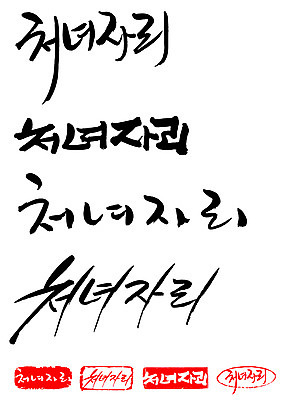 처녀자리
처녀자리
처녀자리
처녀자리
처녀자리 처녀자리 처녀자리 처녀자리